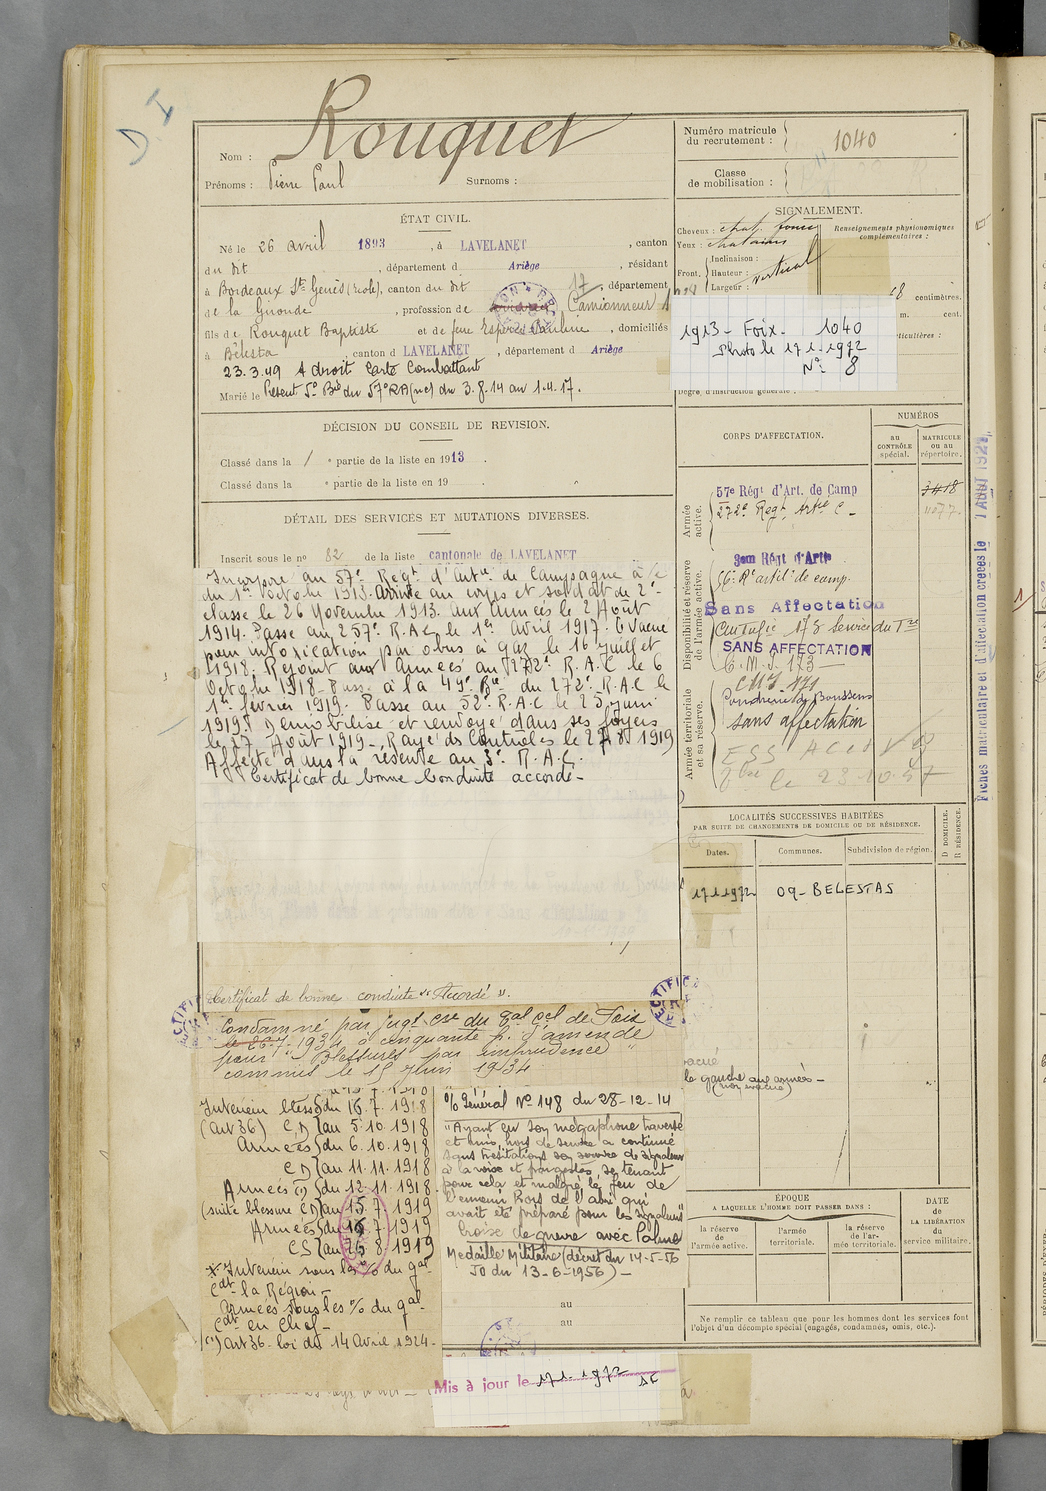 D. I
Rouquet
Nom :
Prénoms : Pierre Paul Surnoms :
ÉTAT CIVIL.
Né le 26 avril 1893 , à LAVELANET , canton
du dit , département d Ariège , résidant
à Bordeaux St Genès (rcole), canton du dit 17 , département
de la Gironde , profession de Camionneur
fils de Rouquet Baptiste et de feue Espérés Pauline , domiciliés
à Bélesta , canton d LAVELANET , département d Ariège
23.3.49 A droit Carte Combattant
Marié le
Présent 5e Bie du 57e RA (nc) du 3.8.14 au 1.4.17.
DÉCISION DU CONSEIL DE REVISION.
Classé dans la 1 e partie de la liste en 1913 .
Classé dans la e partie de la liste en 19 .
DÉTAIL DES SERVICES ET MUTATIONS DIVERSES.
Inscrit sous le no 82 de la liste cantonale de LAVELANET
Incorporé au 57e Régt d'Artie de Campagne à/c
du 1er octobre 1913. Arrivé au corps et soldat de 2e
classe le 26 Novembre 1913. Aux Armées le 2 Août
1914. Passé au 257e R.A.C. le 1er Avril 1917. Evacué
pour intoxication par obus à gaz le 16 juillet
1918. Rejoint aux Armées au 272e R.A.C le 6
Octobre 1918 - Passé à la 49e Bie du 272e R.A.C le
1er février 1919. Passé au 52e R.A.C le 25 juin
1919. Démobilisé et renvoyé dans ses foyers
le 27 Août 1919 -, Rayé des Contrôles le 27 1919
Affecté dans la réserve au 3e R.A.C.
Certificat de bonne Conduite accordé -
Certificat de bonne conduite "Accordé".
Condamné par jugt cre du Bal cel de Foix
le 26-7-1934 à cinquante f. d'amende
pour " Blessures par imprudence "
commis le 15 Juin 1934
Intérieur blessé du 16.7.1918
(art 36) C.D au 5.10.1918
Armées du 6.10.1918
C D au 11.11.1918
Armées (1) du 12.11.1918
(suite blessure CD) au 15.7.1919
Armées du 16.7.1919
CS au 26.8.1919
* Intérieur sous les % du gal
Cdt la Région -
Armées sous les % du gal
Cdt en Chef -
(1) art 36 loi du 14 Avril 1924 -
% Général No 148 du 28-12-14
"Ayant eu son mégaphone traversé
et mis hors de service a continué
sans hésitations son service de signaleur
à la voix et par gestes, se tenant
pour cela et malgré le feu de
l'ennemi hors de l'abri qui
avait été préparé pour les signaleurs"
Croix de guerre avec Palme
Médaille Militaire (décret du 14-5-56
JO du 13-6-1956) -
au
au
Mis à jour le 17 1. 1972
Numéro matricule du recrutement : 1040
Classe de mobilisation :
SIGNALEMENT.
Cheveux : chat. foncé
Yeux : chatains
Front. Inclinaison :
Hauteur : vertical
Largeur :
Renseignements physionomiques complémentaires :
centimètres.
m. cent.
1913 - Foix - 1040
Photo le 17 1.1972
No: 8
Degré d'instruction générale :
CORPS D'AFFECTATION.
NUMÉROS
au CONTRÔLE spécial.
MATRICULE ou au répertoire.
Armée active.
57e Régt d'Art. de Camp 3418
272e Regt Artie C - 1077
Disponibilité et réserve de l'armée active.
3em Régt d'Artie
56e Rt artil de camp.
Sans Affectation
SANS AFFECTATION
C.M.I. 173
Armée territoriale et sa réserve.
CMI 171
Poudrerie de Boussens
sans affectation
le 23-10-57
LOCALITÉS SUCCESSIVES HABITÉES
PAR SUITE DE CHANGEMENTS DE DOMICILE OU DE RÉSIDENCE.
Dates. Communes. Subdivision de région. D DOMICILE. R RÉSIDENCE.
17 1 1972 09 - BELESTAS
la gauche aux armées -
(non évacué)
ÉPOQUE
A LAQUELLE L'HOMME DOIT PASSER DANS :
la réserve de l'armée active.
l'armée territoriale.
la réserve de l'armée territoriale.
DATE de LA LIBÉRATION du service militaire.
Ne remplir ce tableau que pour les hommes dont les services font
l'objet d'un décompte spécial (engagés, condamnés, omis, etc.).
Fiches matriculaire et d'affectation créées le 1 AOUT 1927